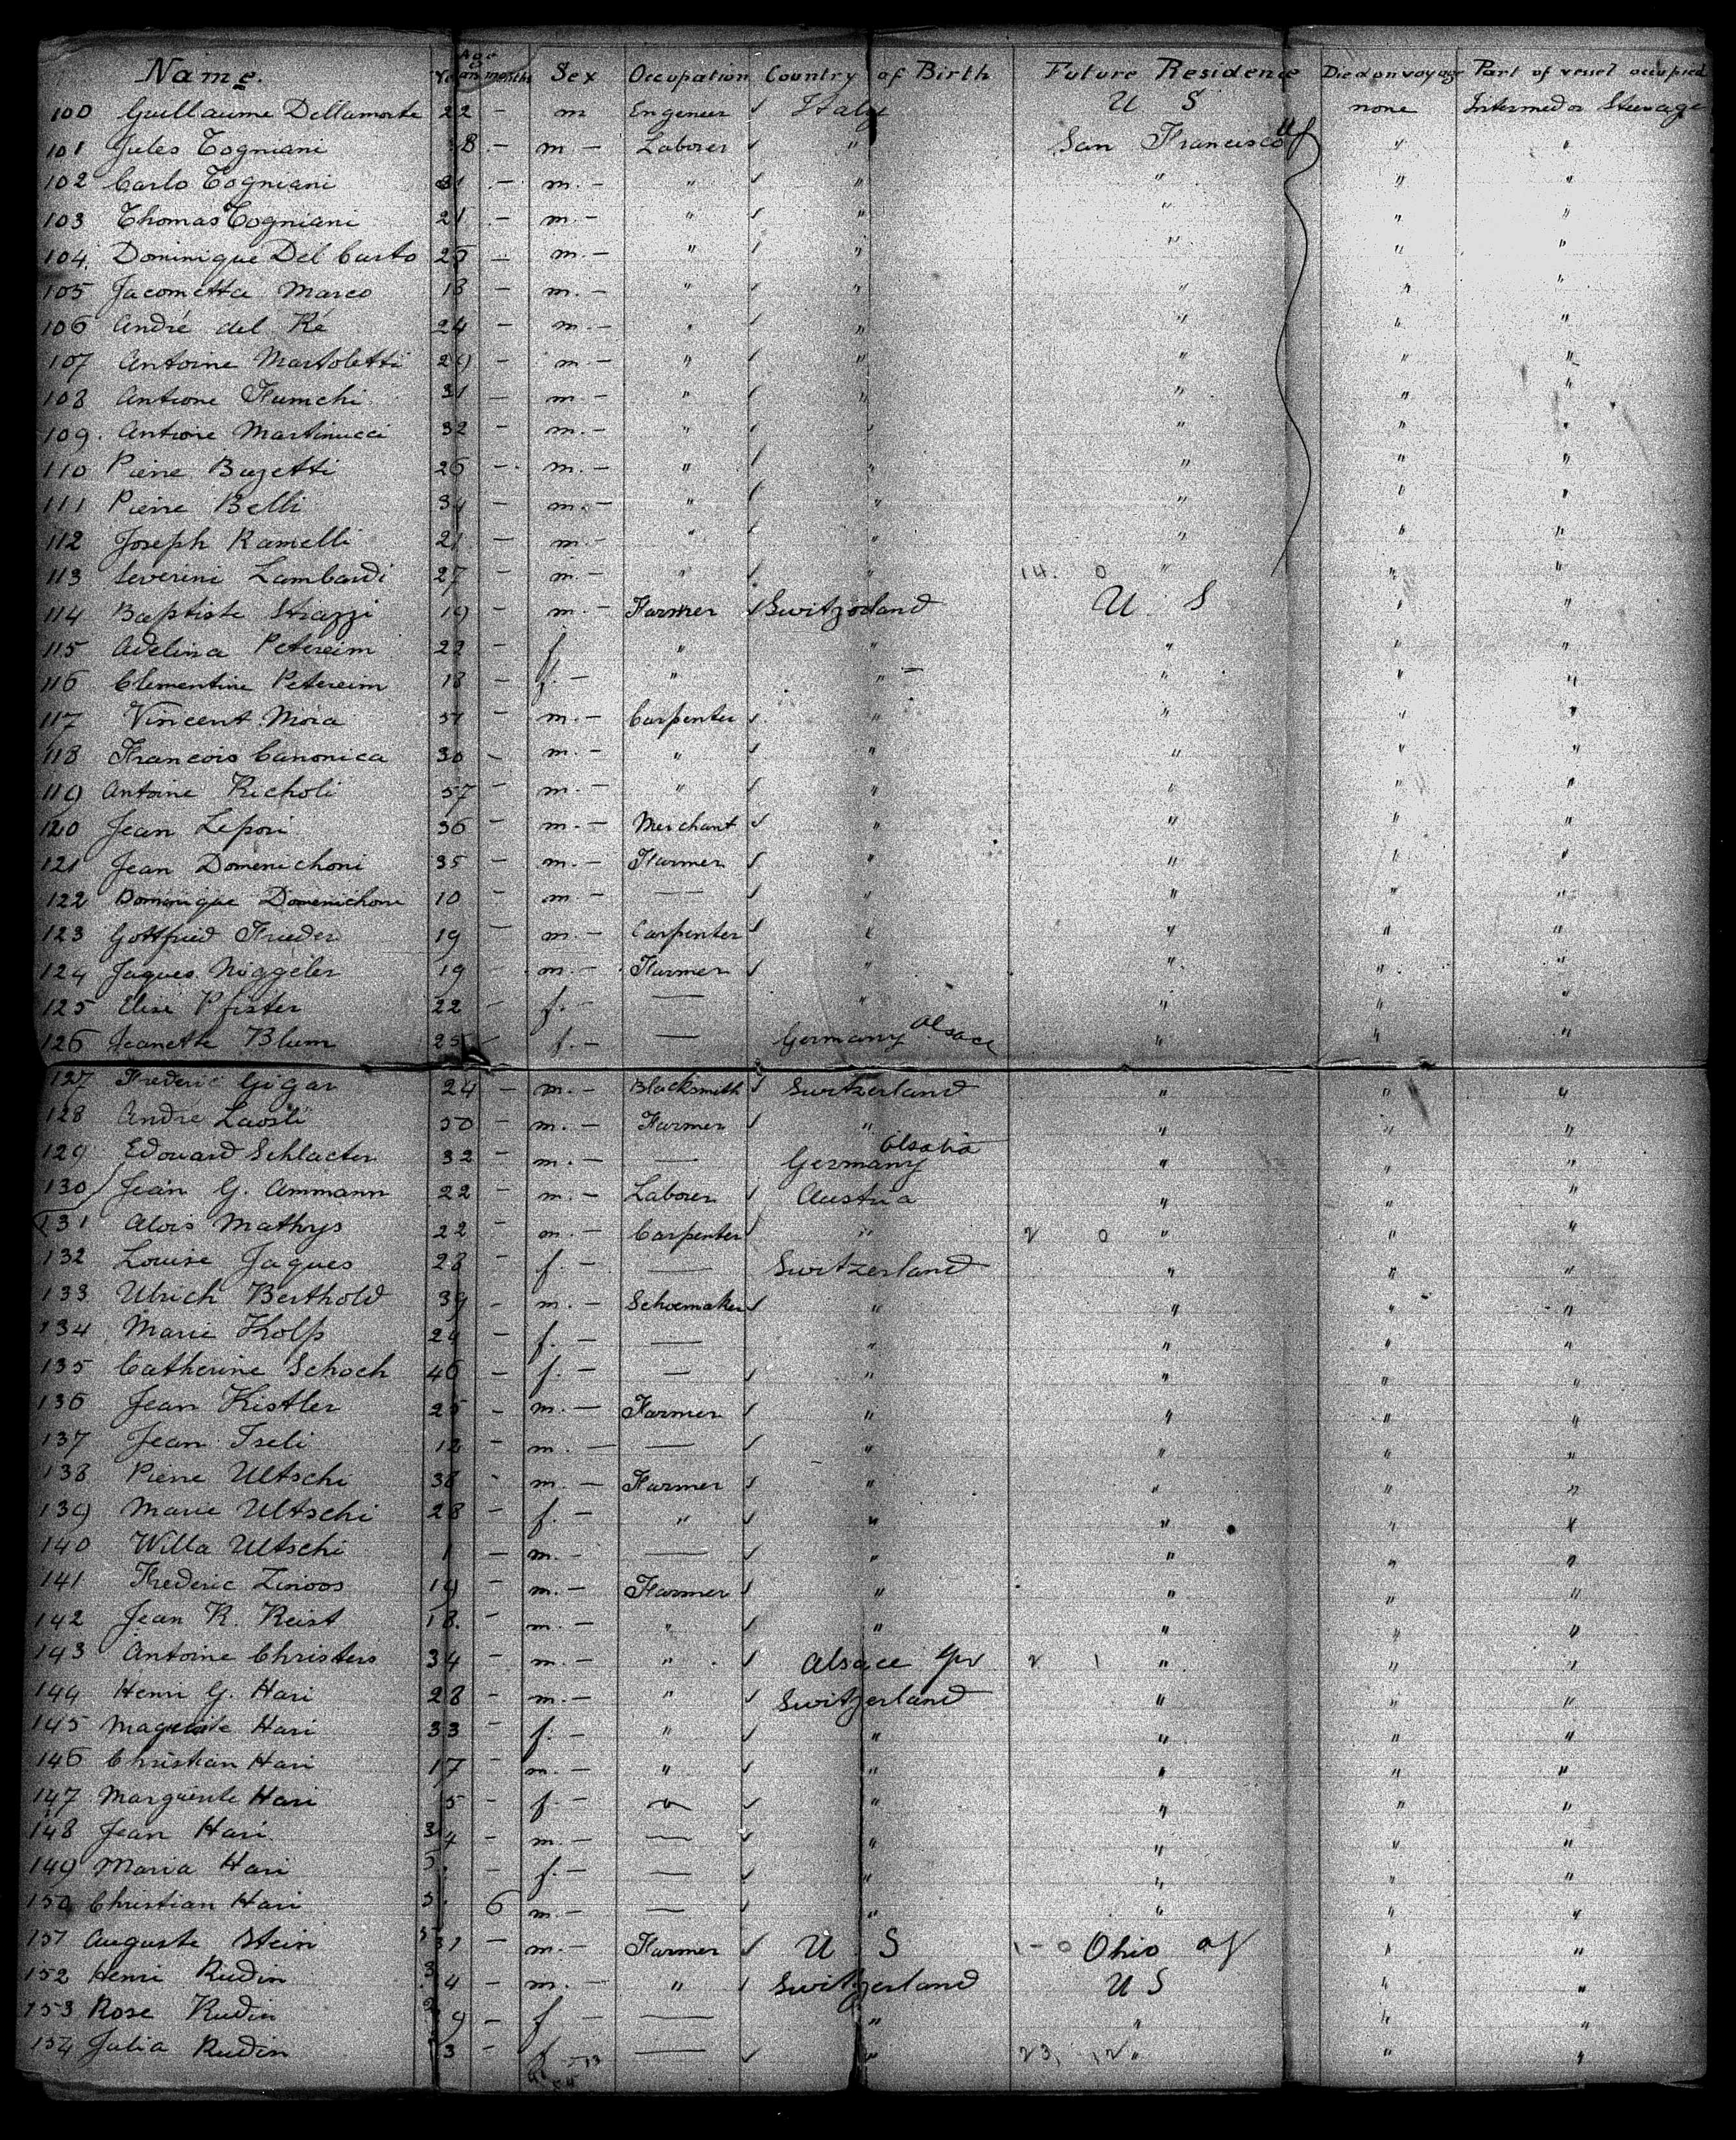 Name. Age Years months Sex Occupation Country of Birth Future Residence Died on voyage Part of vessel occupied
100 Guillaume Dellamorte 22 - m Engeneer ✓ Italy U S none Intermed or Steerage
101 Jules Togniani 8 - m - Laborer ✓ " San Francisco " "
102 Carlo Togniani 31 - m. - " ✓ " " " "
103 Thomas Togniani 21 - m - " ✓ " " " "
104 Dominique Del Curto 25 - m. - " ✓ " " " "
105 Jacometta Marco 18 - m. - " ✓ " " " "
106 André del Ré 24 - m. - " ✓ " " " "
107 Antoine Martoletti 29 - m - " ✓ " " " "
108 Antione Fumchi 31 - m - " ✓ " " " "
109. Antione Martinucci 32 - m. - " ✓ " " " "
110 Pierre Buzetti 26 - m. - " ✓ " " " "
111 Pierre Belli 34 - m. - " ✓ " " " "
112 Joseph Ramelli 21 - m - " ✓ " " " "
113 Severini Lambardi 27 - m. - " ✓ " 14. 0 " " "
114 Baptiste Strazzi 19 - m. - Farmer ✓ Switzerland U S " "
115 Adelina Petereim 22 - f " " " " "
116 Clementine Petereim 18 - f. - " " " " "
117 Vincent Mora m. - Carpenter ✓ " " " "
118 Francois Canonica 30 - m - " ✓ " " " "
119 Antoine Richoli 57 - m - " ✓ " " " "
120 Jean Lepori 36 - m. - Merchant ✓ " " " "
121 Jean Domenichoni 35 - m. - Farmer ✓ " " " "
122 Dominique Domenichoni 10 - m - — ✓ " " " "
123 Gottfried Frieder 19 - m. - Carpenter ✓ " " " "
124 Jaques Niggeler 19 - m. - Farmer ✓ " " " "
125 Elise Pfister 22 - f. - — " " " "
126 Jeanette Blum 25 - f. - — Germany Alsace " " "
127 Frederic Gigar 24 - m. - Blacksmith ✓ Switzerland " " "
128 Andre Laosli 50 - m. - Farmer ✓ " " " "
129 Edouard Schlacter 32 - m. - — Germany Alsatia " " "
130 Jean G. Ammann 22 - m. - Laborer ✓ Austria " " "
131 Alois Mathys 22 - m. - Carpenter ✓ " 2 0 " " "
132 Louise Jaques 28 - f. - — Switzerland " " "
133 Ulrich Berthold 39 - m. - Schoemaker ✓ " " " "
134 Marie Kolp 24 - f. - — " " " "
135 Catherine Schoch 46 - f. - — ✓ " " " "
136 Jean Kistler 25 - m. - Farmer ✓ " " " "
137 Jean Iseli 12 - m. - — ✓ " " " "
138 Pierre Ultschi 38 - m. - Farmer ✓ " " " "
139 Marie Ultschi 28 - f. - " ✓ " " " "
140 Willa Ultschi 1 - m. - — ✓ " " " "
141 Frederic Zinoos 19 - m. - Farmer ✓ " " " "
142 Jean R. Reist 18. - m. - " ✓ " " " "
143 Antoine Christers 34 - m. - " ✓ Alsace Gr 2 1 " " "
144 Henri G. Hari 28 - m. - " ✓ Switzerland " " "
145 Maguerite Hari 33 - f. - " ✓ " " " "
146 Christian Hari 17 - m. - " ✓ " " " "
147 Marguerite Hari 5 - f - ✓ " " " "
148 Jean Hari 4 - m. - — ✓ " " " "
149 Maria Hari - f. - — ✓ " " " "
150 Christian Hari 6 m. - — ✓ " " " "
151 Auguste Stein 31 - m. - Farmer ✓ U S 1 - 0 Ohio " "
152 Henri Rudin 4 - m. - " ✓ Switzerland U S " "
153 Rose Rudin 9 - f — " " " "
154 Julia Rudin 3 - f — ✓ " 23, 12 " " "